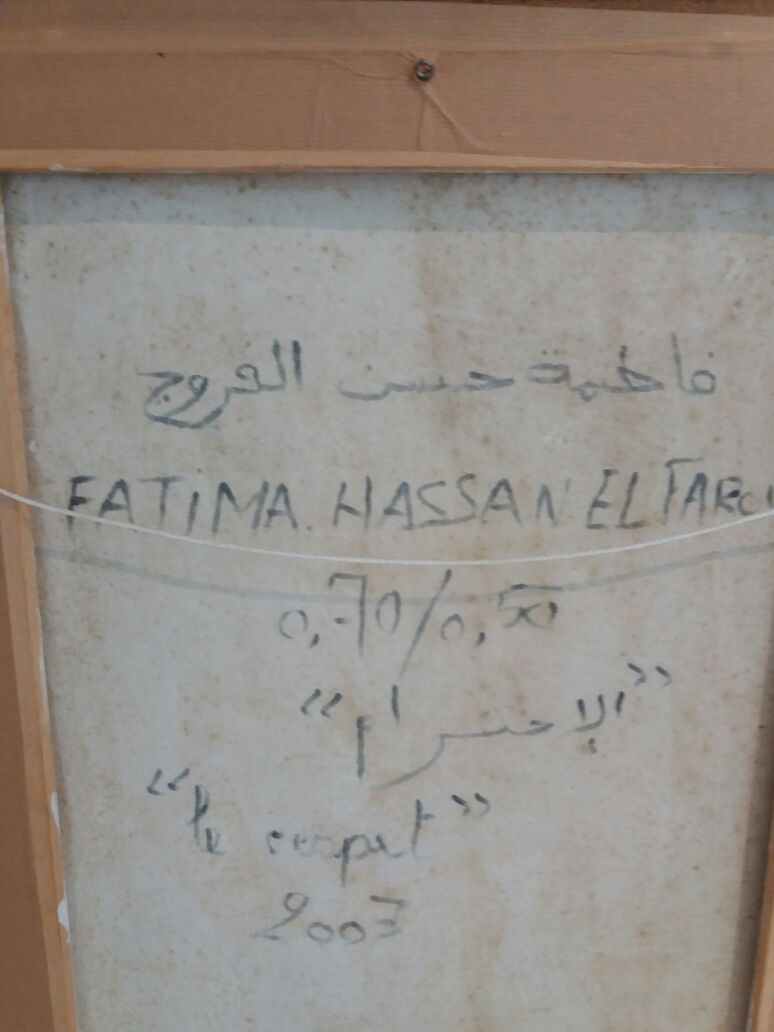 فاطمة حسن الفروج
FATiMA. HASSAN EL FAROU
0,70/0,50
"الإحترام"
"le respect"
2003